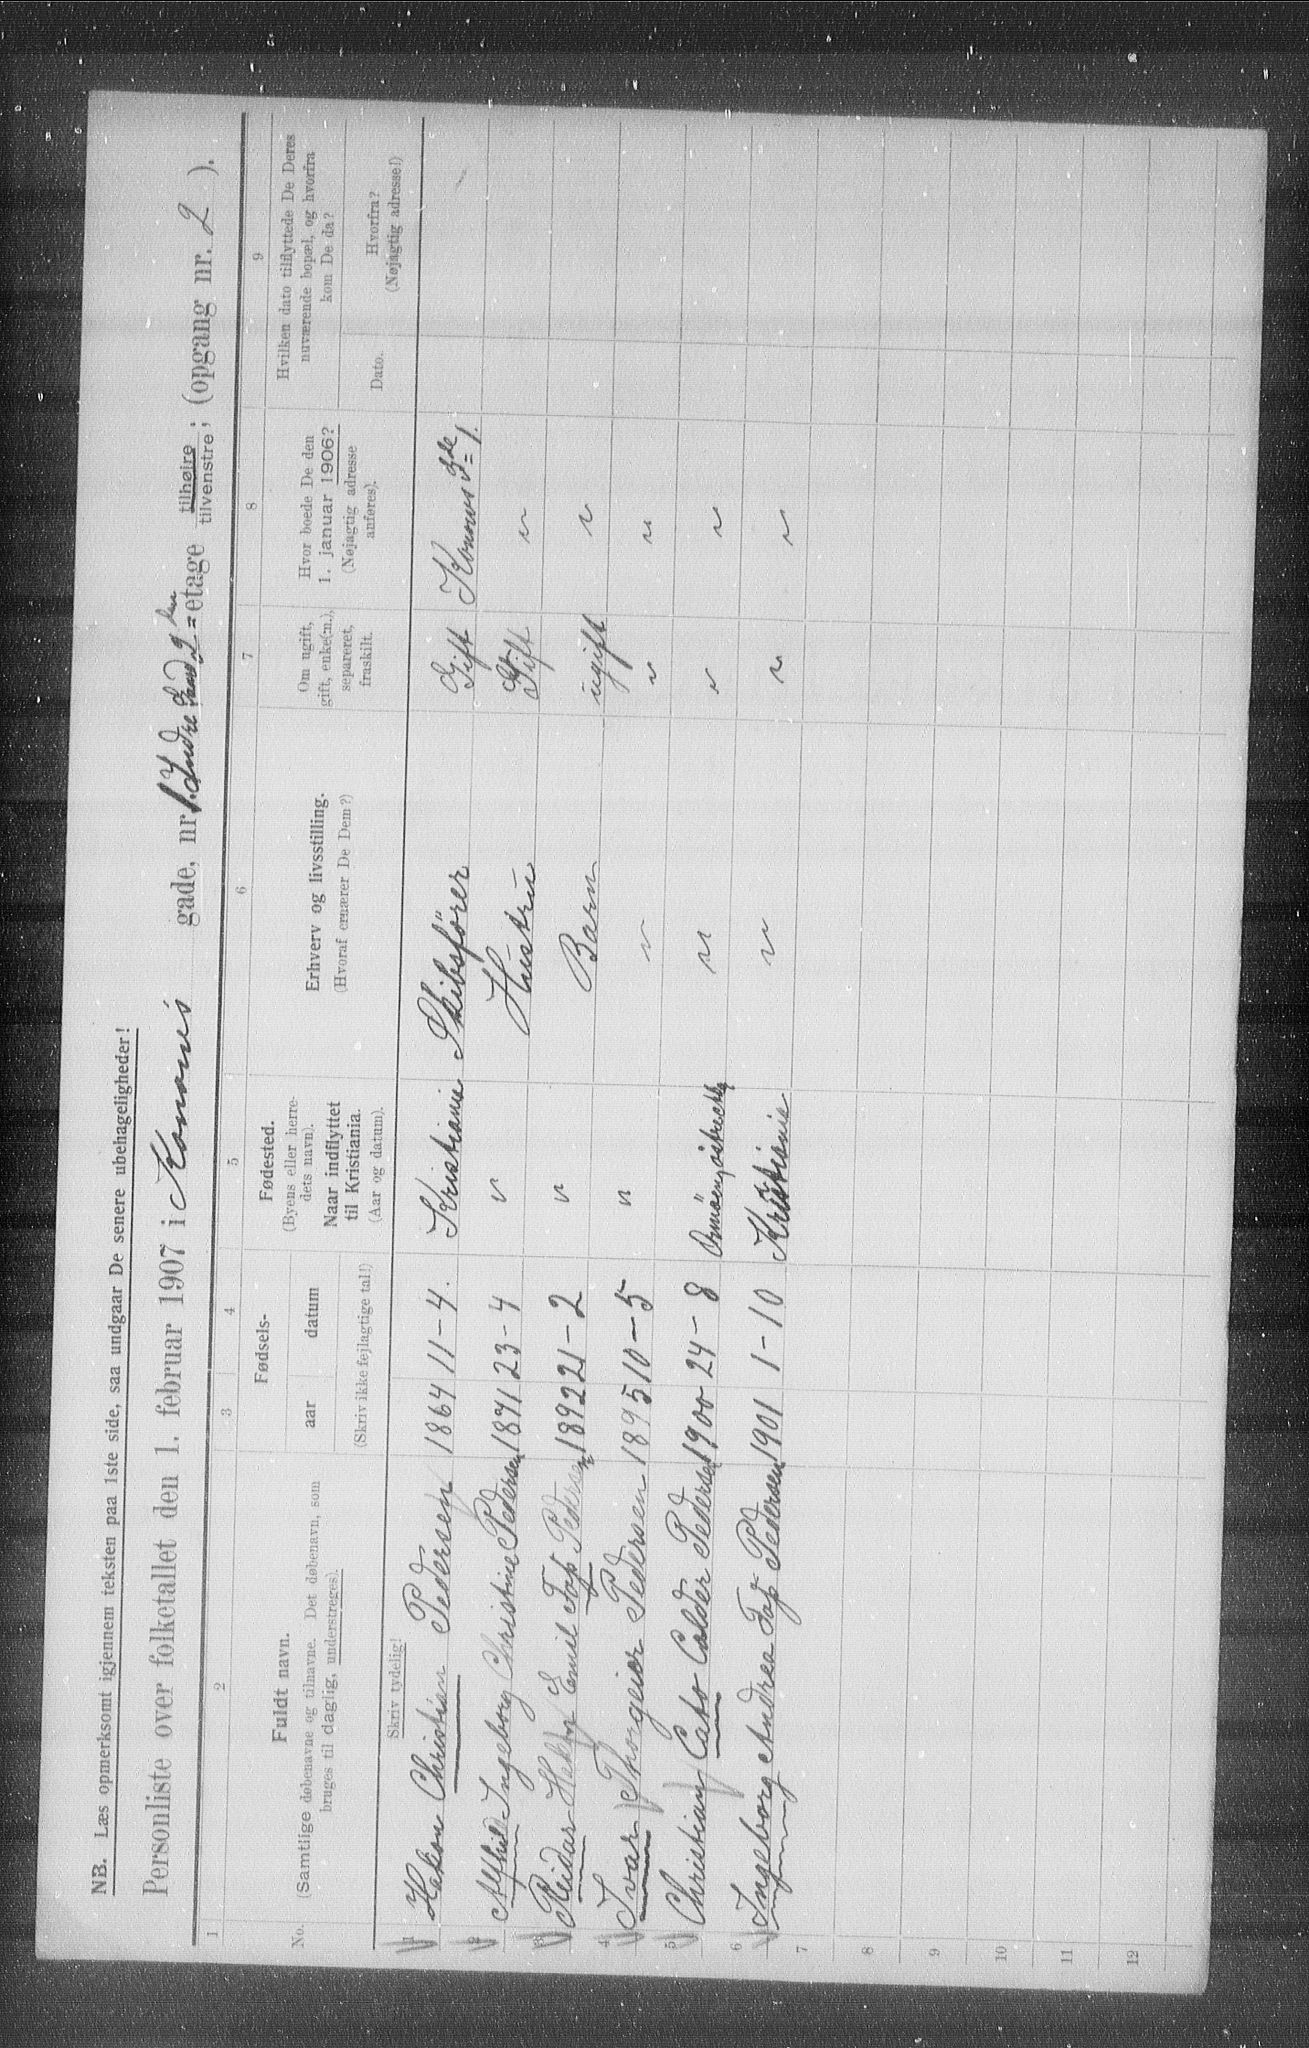 NB. Læs opmerksomt igjennem teksten paa 1ste side, saa undgaar De senere ubehageligheder!
Personliste over folketallet den 1. februar 1907 i Konows gade, nr. 1. 2 den etage tilhøire; tilvenstre; (opgang nr. 2 ).
1 2 3 4 5 6 7 8 9
No. Fuldt navn. (Samtlige døbenavne og tilnavne. Det døbenavn, som bruges til daglig, understreges). Fødsels- aar datum Fødested. (Byens eller herredets navn). Naar indflyttet til Kristiania. (Aar og datum). Erhverv og livsstilling. (Hvoraf ernærer De Dem?) Om ugift, gift, enke(m.), separeret, fraskilt. Hvor boede De den 1. januar 1906? (Nøjagtig adresse anføres). Hvilken dato tilflyttede De Deres nuværende bopæl, og hvorfra kom De da?
Skriv tydelig! (Skriv ikke fejlagtige tal!) Dato. Hvorfra? (Nøjagtig adresse!)
1 Hakon Christian Pedersen 1864 11-4. Kristiania Skibsfører Gift Konows gde 1.
2 Alfhild Ingeborg Christine Pedersen 1871 23-4 " Hustru Gift "
3 Reidar Hakon Emil Pedersen 1892 21-2 " Barn ugift "
4 Ivar Thorgeir Pedersen 1895 10-5 " " " "
5 Christian Cato Calder Pedersen 1900 24-8 Ormøen, " " "
6 Ingeborg Andrea Pedersen 1901 1-10 Kristiania " " "
7
8
9
10
11
12